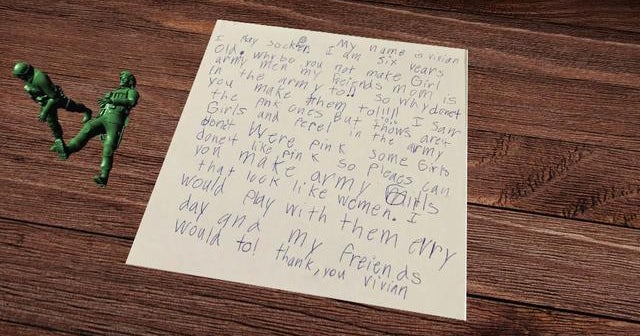 My name is vivian
I Play socker I am six years
old. Why do you not make Girl
army men my freinds mom is
in the army to!! so why donet
you make them to!!!! I saw
the pink ones But thows aret
Girls and in the army
donet Were pink some Girls
donet like pink so pleacs can
you make army Girls
that look like women. I
would Play with them evry
day and my freiends
Would to! thank, you vivian